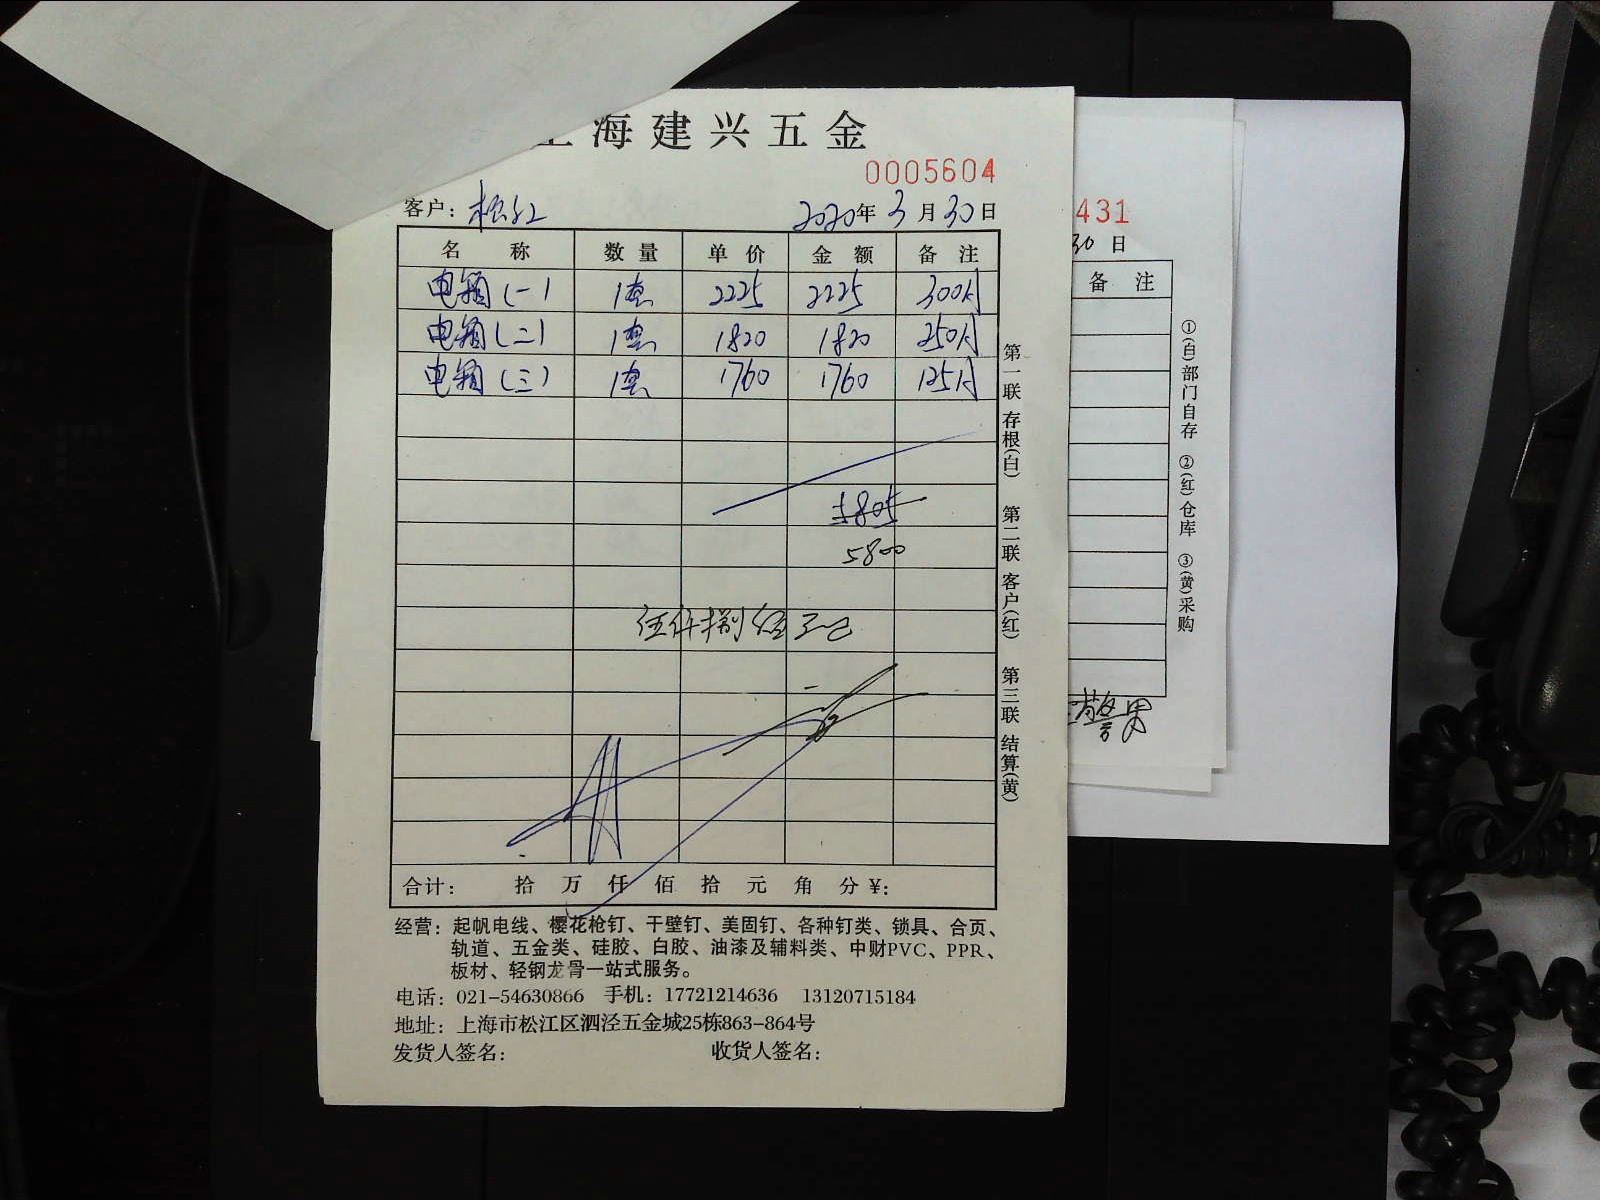 上海建兴五金
0005604
客户：松江 2020年3月30日
名称 数量 单价 金额 备注
电箱(一) 1套 2225 2225 300A
电箱(二) 1套 1820 1820 250A
电箱(三) 1套 1760 1760 125A
5805
5800
伍仟捌佰元正
合计： 拾 万 仟 佰 拾 元 角 分 ¥:
经营：起帆电线、樱花枪钉、干壁钉、美固钉、各种钉类、锁具、合页、
轨道、五金类、硅胶、白胶、油漆及辅料类、中财PVC、PPR、
板材、轻钢龙骨一站式服务。
电话：021-54630866 手机：17721214636 13120715184
地址：上海市松江区泗泾五金城25栋863-864号
发货人签名： 收货人签名：
第一联 存根(白) 第二联 客户(红) 第三联 结算(黄)
431
30日
备注
①(白)部门自存 ②(红)仓库 ③(黄)采购